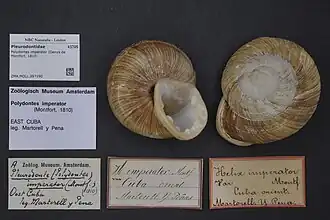 NBC Naturalis - Leiden
Pleurodontidae
Polydontes imperator (Denys de
Montfort, 1810)
Zoölogisch Museum Amsterdam
Polydontes imperator
(Montfort, 1810)
EAST CUBA
leg. Martorell y Pena
A Zoölog. Museum, Amsterdam.
Pleurodonte (Polydontes)
imperator (Montf.)
East Cuba
by Martorell y Pena
H. imperator Montf
Cuba orient.
Martorell y Peña
Helix imperator
Var. Montf.
Cuba orient.
Martorell y Peña